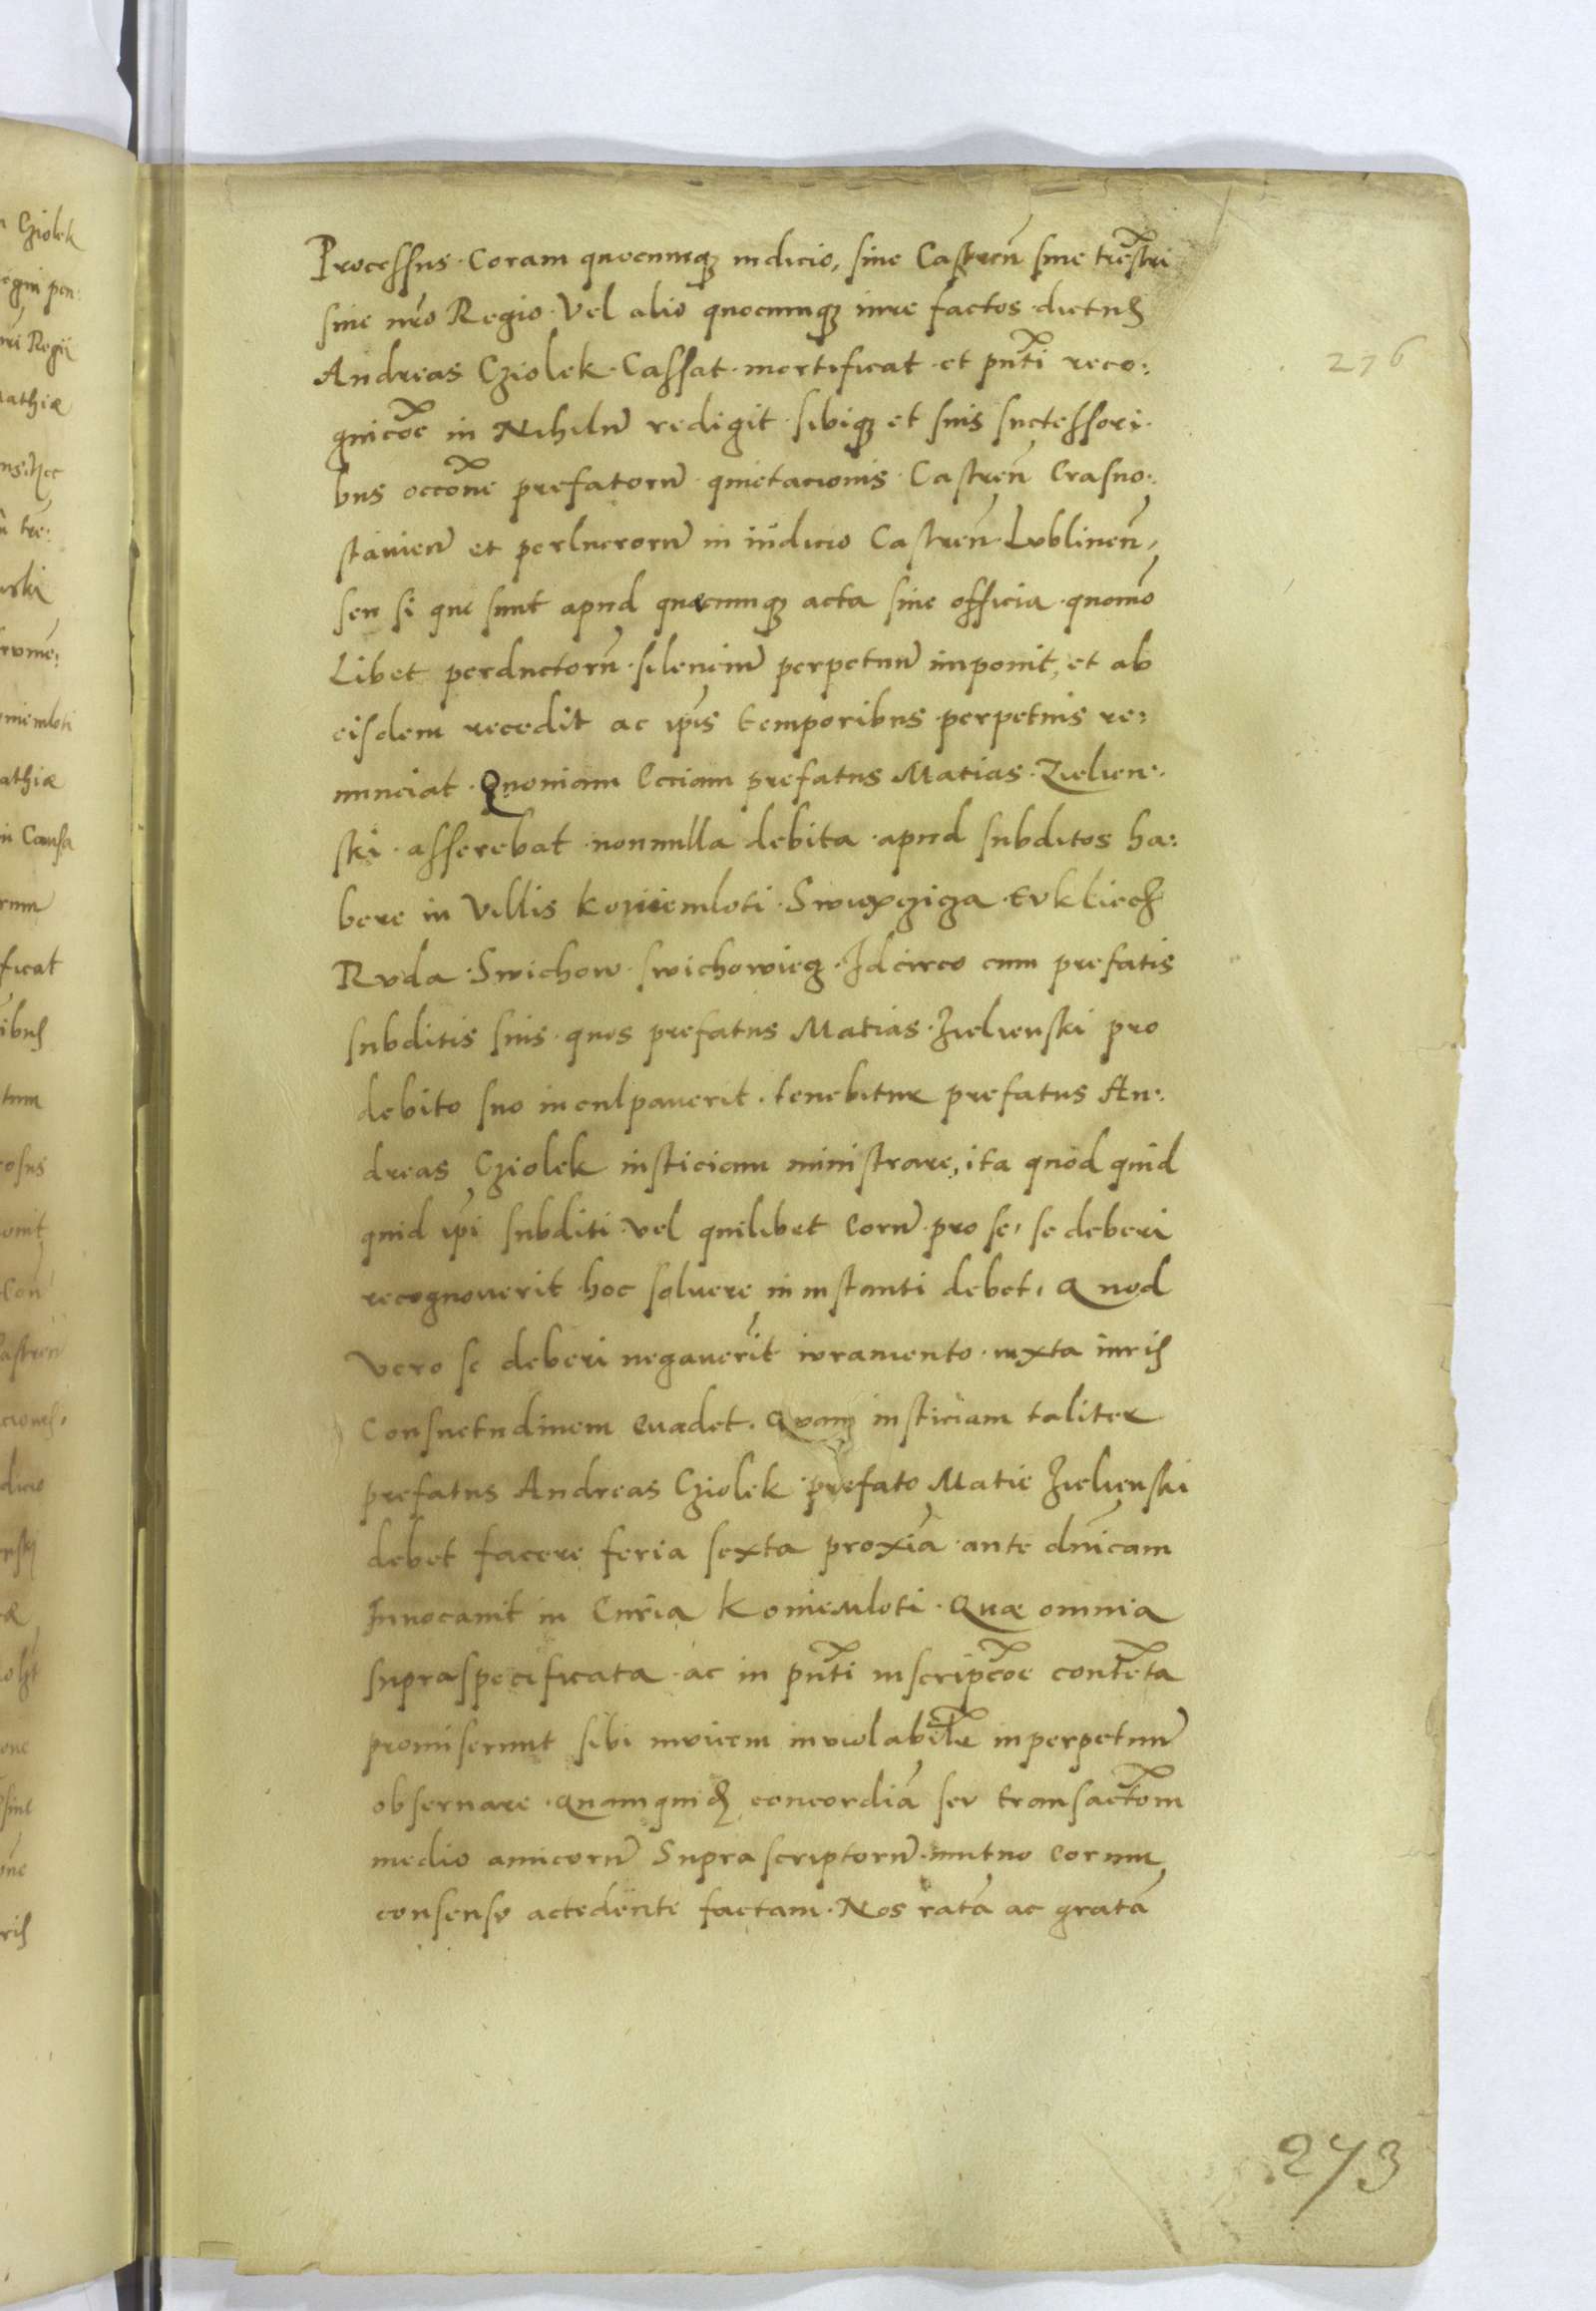 Processus · Coram quocunq₃ iudicio, siue Castren̄ siue tre͞stri
siue nr̄o Regio · Vel alio quocunq₃ iure factos · dictus
Andreas Cziolek · Cassat · mortificat · et pn̄ti reco:
gnicōe in Nihilū redigit · sibiq₃ et suis successori·
bus occōne prefatorū · quietacionis · Castren̄ Crasno:
stauien̄ et perlucrorū in iudicio Castren̄ Lublinen̄,
seu si que sunt apud quecunq₃ acta siue officia · quomō
Libet perductorū · silenciū perpetuū imponit, et ab
eisdem recedit ac ip̄is temporibus perpetuis re:
nunciat · Quoniam Eciam prefatus Matias · Zielien·
ski · asserebat · nonnulla debita · apud subditos ha:
bere in Villis koniemloti ·
Ruda · Swichow · swichowiecz · Idcirco cum prefatis
subditis suis · quos prefatus Matias · Zielienski pro
debito suo inculpauerit · tenebitur prefatus An:
dreas Cziolek iusticiam ministrare, ita quod quid
quid ip̄i subditi · vel quilibet eorū · pro se, se deberi
recognouerit hoc soluere in instanti debet, Quod
vero se deberi negauerit iuramento · iuxta iuris
Consuetudinem euadet · Quam iusticiam taliter
prefatus Andreas Cziolek prefato Matie Zielienski
debet facere feria sexta proxīa · ante dn̄icam
Inuocauit in Curia Koniemloti · Quæ omnia
supraspecificata · ac in pn̄ti inscripcōe contēta
promiserunt sibi inuicem inuiolabilr̄ inperpetuū
obseruare · Quamquid₃ concordiā seu transactōm
medio amicorū Suprascriptorū · mutuo eorum
consensu accedente factam · Nos ratā ac gratā
276
273